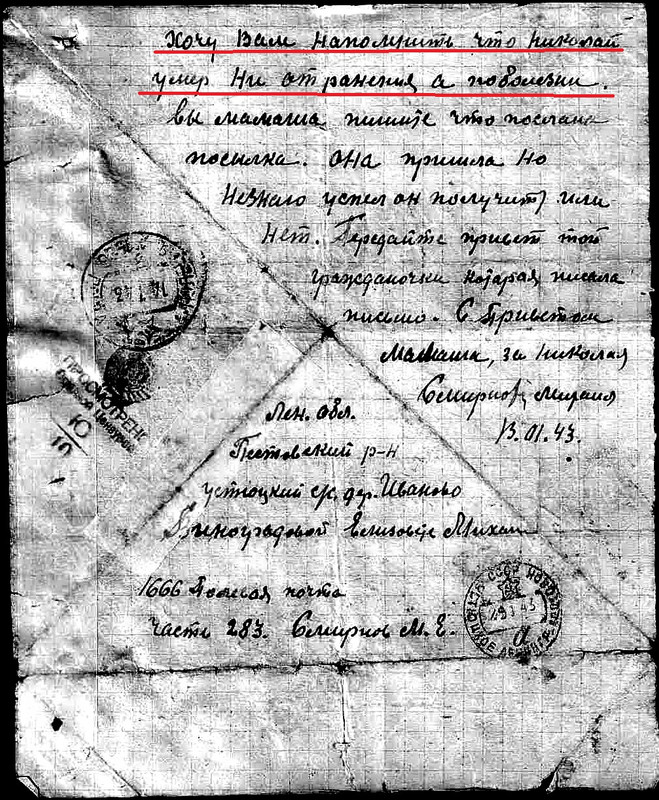 Хочу Вам напомнить что Николай
умер Ни от ранения а поболезни.
вы мамаша пишите что послана
посылка. она пришла но
Незнаю успел он получить или
Нет. Передайте привет той
гражданочки которая писала
письмо. С Приветом
Мамаша, за Николая
Смирнов Михаил
13.01.43.
ПРОСМОТРЕНО
10
Лен. обл.
Пестовский р-н
устюцкий с/с. дер. Иваново
Виноградовой Елизовете Михай
1666 Полевая почта
часть 283. Смирнов М. Е.